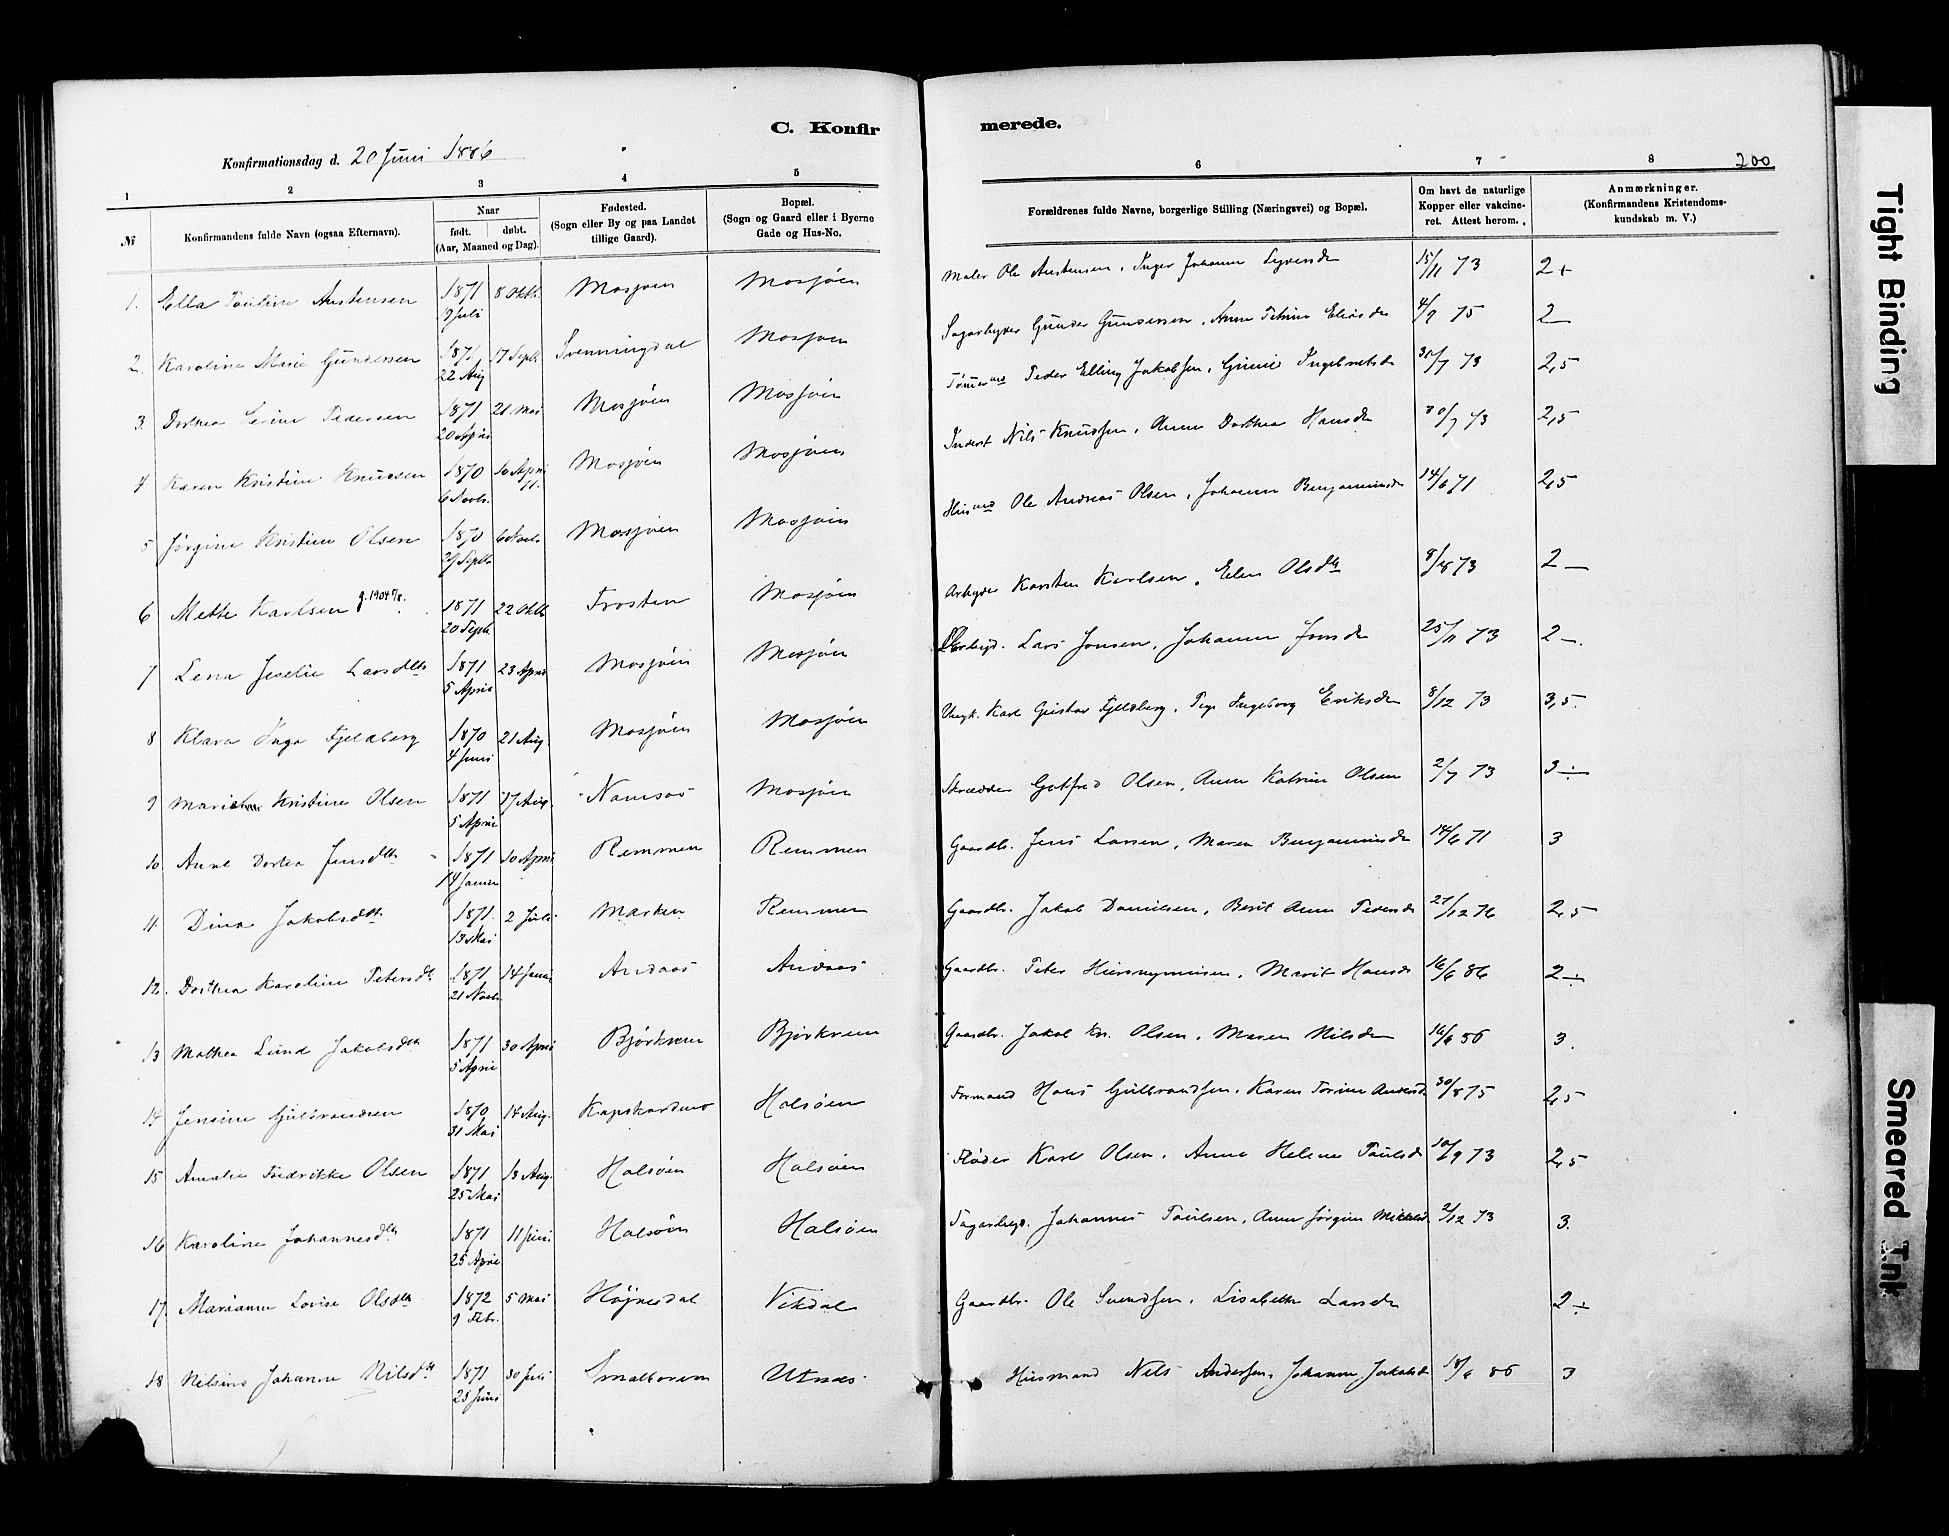 C. Konfirmerede.
200
Konfirmationsdag d. 20 Juni 1886
1 2 3 4 5 6 7 8
№
Konfirmandens fulde Navn (ogsaa Efternavn).
Naar
født. døbt.
(Aar, Maaned og Dag).
Fødested.
(Sogn eller By og paa Landet
tillige Gaard).
Bopæl.
(Sogn og Gaard eller i Byerne
Gade og Hus-No.
Forældrenes fulde Navne, borgerlige Stilling (Næringsvei) og Bopæl.
Om havt de naturlige
Kopper eller vakcine-
ret. Attest herom.
Anmærkninger.
(Konfirmandens Kristendoms-
kundskab m. V.)
1. Ella Pauline Austensen 1871 9 Juli 8 Oktb. Mosjøen Mosjøen Maler Ole Austensen, Inger Johanna 15/11 73 2+
2. Karoline Marie Gundersen 1871 22 Aug 17 Septb. Svenningdal Mosjøen Sagarbeider Gunder Gundersen, Anne Petrine Eliasdr 4/9 75 2
3. Dorthea Serine Pedersen 1871 20 April 21 Mai Mosjøen Mosjøen Tømmermd Peder Elling Jakobsen, Grunie Ingebretsdr 30/7 73 2,5
4 Karen Kristine Knudsen 1870 6 Novb. 10 April 71. Mosjøen Mosjøen Inderst Nils Knudsen, Anne Dorthea Hansdr 30/7 73 2,5
5 Jørgine Kristine Olsen 1870 29 Septb 6 Novb Mosjøen Mosjøen Husmd Ole Andreas Olsen, Johanna Benjaminsdr 14/6 71 2,5
6 Mette Karlsen g. 1904 7/8. 1871 20 Septb. 22 Oktb Trosten Mosjøen Arbeider Karsten Karlsen, Elen Olsdtr 8/8 73 2 —
7 Lena Jeselie Larsdtr 1871 5 April 23 April Mosjøen Mosjøen Arbeid. Lars Jonsen, Johanna Jonsdr 25/11 73 2 —.
8 Klara Inga Fjeldberg 1870 4 Juni 21 Aug. Mosjøen Mosjøen Karl Gustav Fjeldberg, Ingeborg Eriksdr 8/12 73 3,5
9 Kristine Olsen 1871 5 April 17 Aug. Namsos Mosjøen Skrædder Gotfred Olsen, Anne Katrine Olsen 2/7 73 3 ÷
10 Anne Dortea Jensdtr 1871 14 Januar 10 April Remmen Remmen Gaardbr. Jens Larsen, Maren Benjaminsdr 14/6 71 3
11. Dina Jakobsdtr 1871. 13 Mai 2 Juli Marken Remmen Gaardbr. Jakob Danielsen, Berit Anne Pedersdr 27/12 76 2,5
12. Dorthea Karoline Petersdtr 1871 21 Novb. 14 Januar Andaas Andaas Gaardbr. Peter Hieronymusen, Marit Hansdr 16/6 86 2 ÷
13 Mathea Lund Jakobsdtr 1871 5 April 30 April Bjørkmem Bjørkmem Gaardbr. Jakob Kr. Olsen, Maren Nilsdr 16/6 86 3.
14 Jensine Gulbrandsen 1870 31 Mai 14 Aug. Kapskardmo Halsøen Formand Hans Gulbrandsen, Karen Torine Andersdr 30/8 75 2,5
15 Amalie Fredrikke Olsen 1871 25 Mai 13 Aug. Halsøen Halsøen Fløder Karl Olsen, Anne Helene Paulsdr 10/9 73 2,5
16 Karoline Johannesdtr 1871 25 April 11 Juni. Halsøen Halsøen Sagarbeid. Johannes Paulsen, Anne Jørgine Mikkelsdr 2/12 73 3.
17 Marianne Lovise Olsdtr 1872 9 Febr. 5 Mai Højnesdal Vikdal Gaardbr. Ole Svendsen, Lisabeth Larsdr 2 ÷
18 Nilsine Johanne Nilsdtr 1871 25 Juni 30 Juli Smalborem Utnæs Husmand Nils Andersen, Johanna Jakobsdr 18/6 86 3
Tight Binding
Smeared Ink